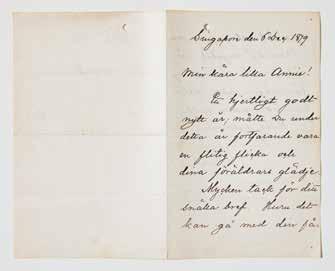 Singapore den 6 Dec 1879
Min kära lilla Annie!
Ett hjertligt godt
nytt år, måtte Du under
detta år fortfarande vara
en flitig flicka och
dina föräldrars glädje.
Mycken tack för ditt
snälla bref. Huru det
kan gå med din få